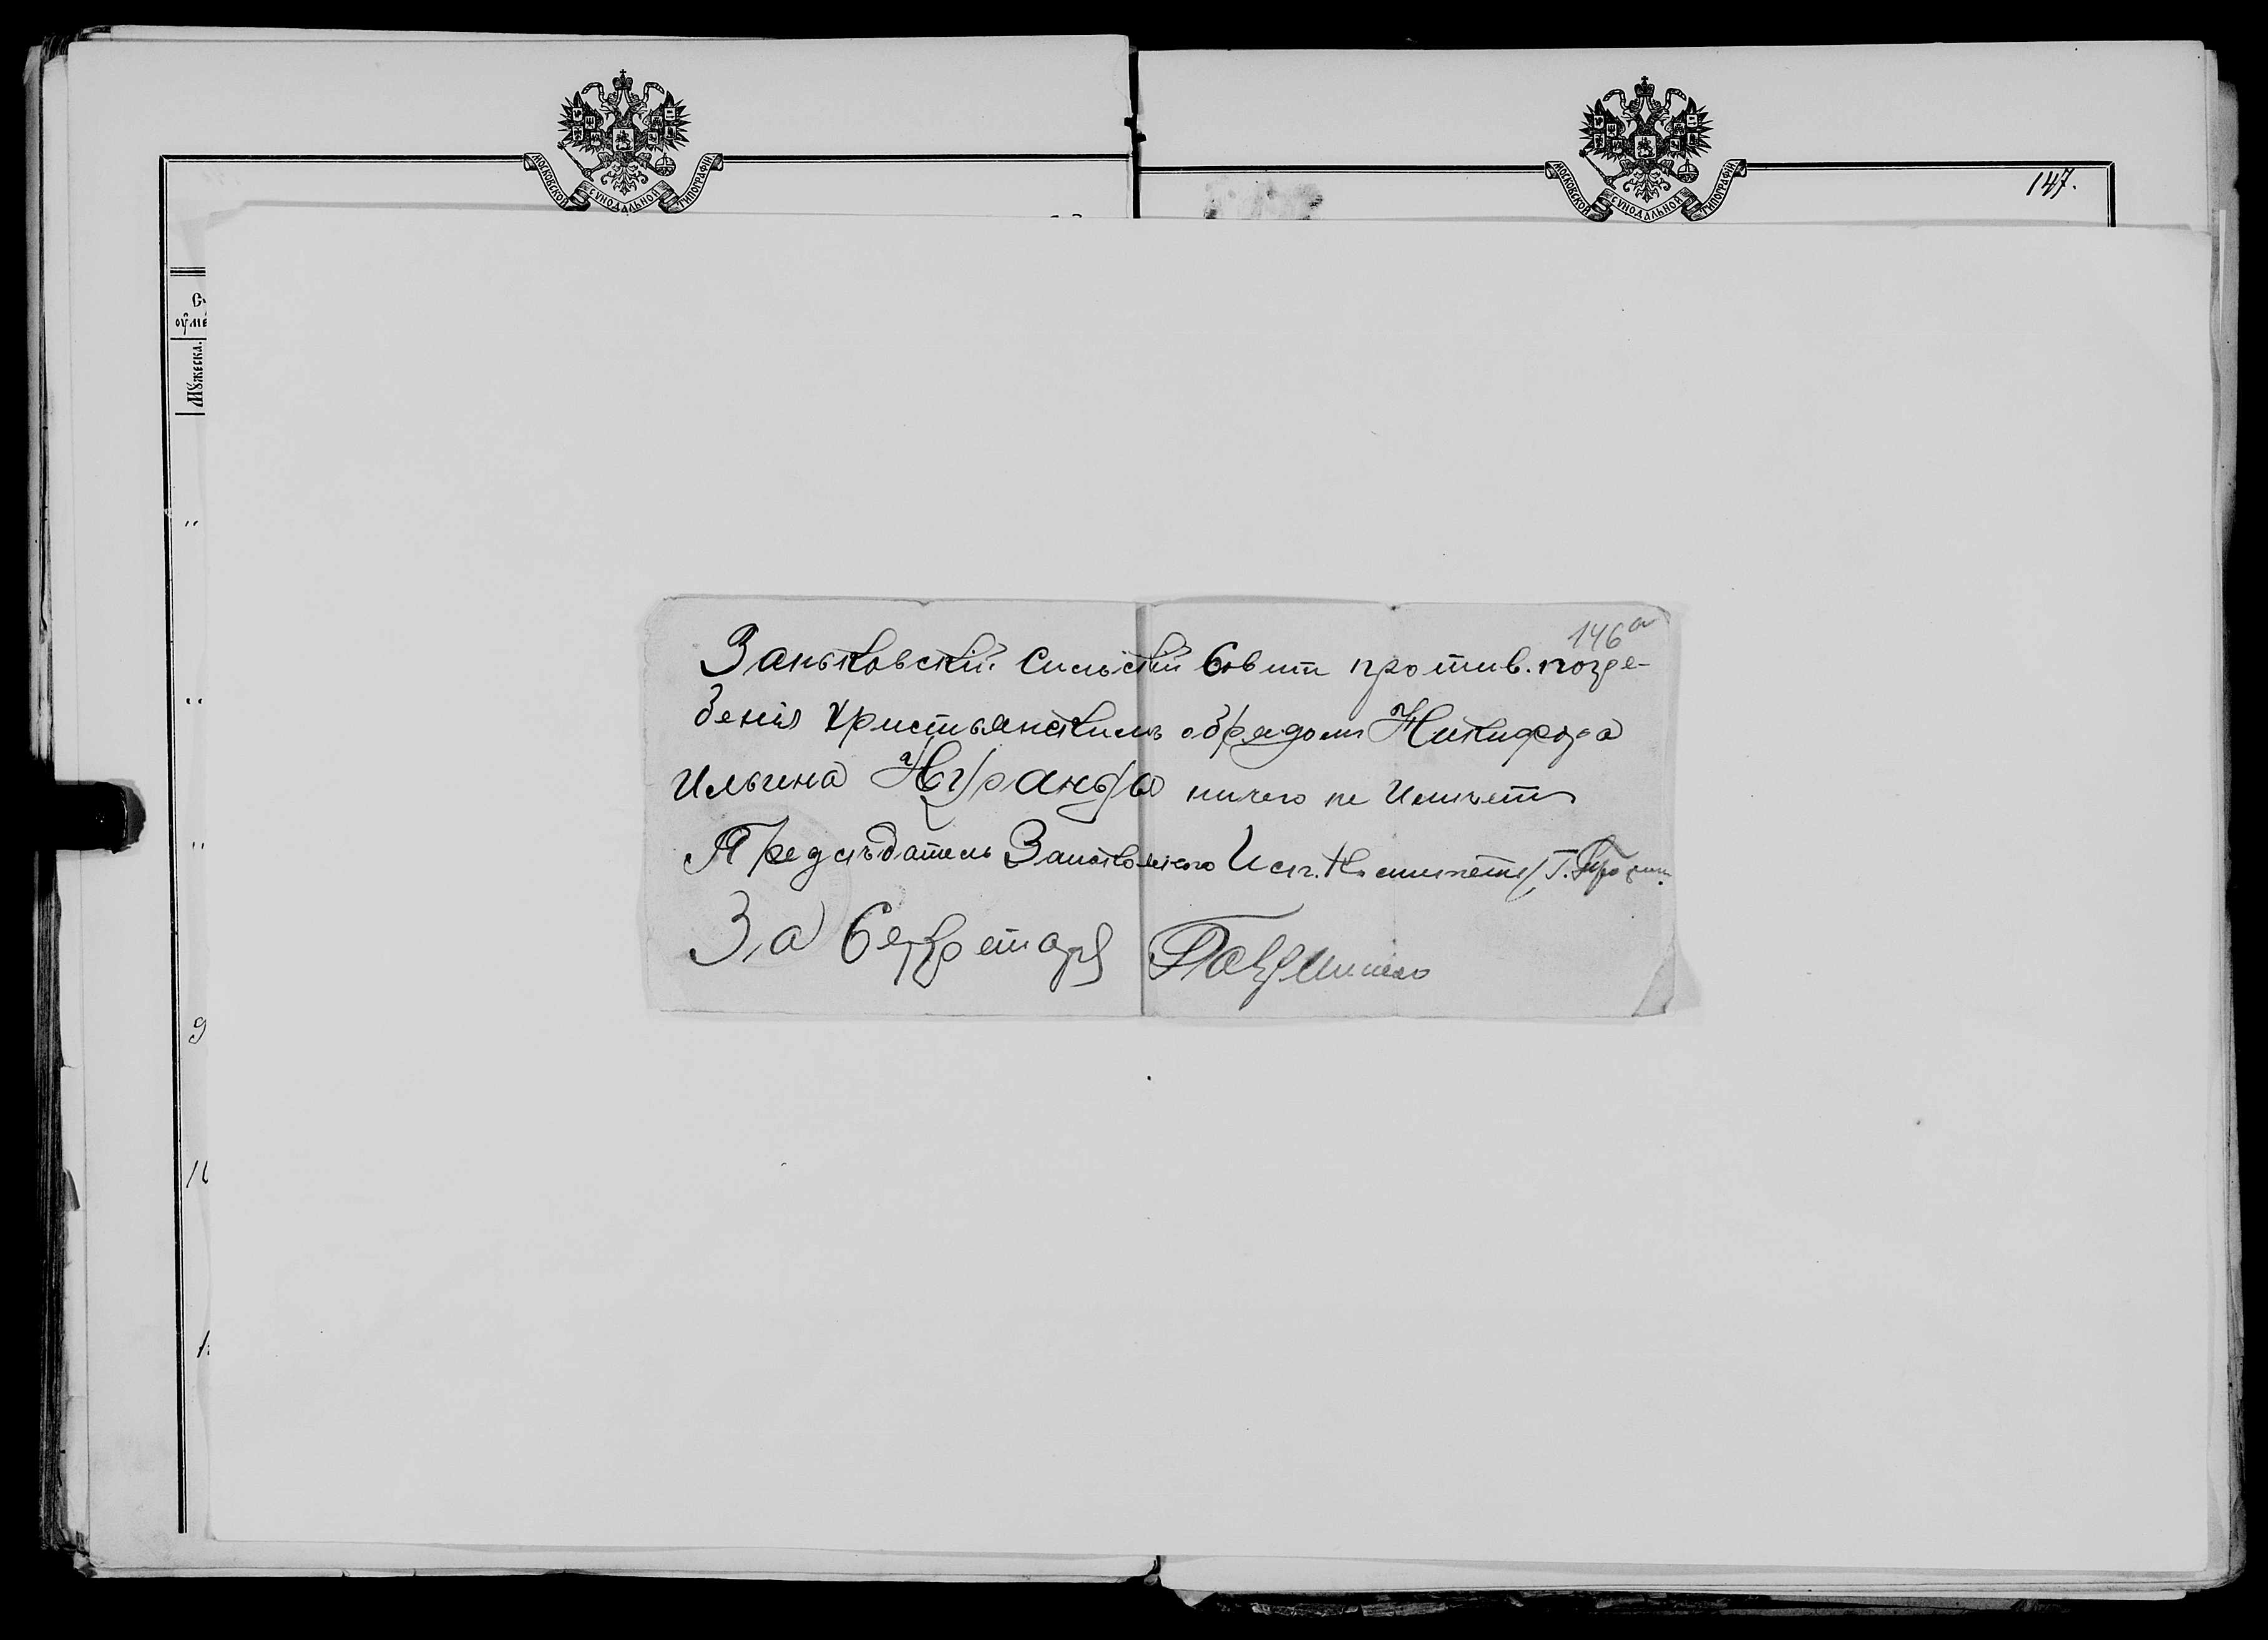 МОСКОВСКОЙ СУНОДАЛЬНОЙ ТИПОГРАФІИ
МОСКОВСКОЙ СУНОДАЛЬНОЙ ТИПОГРАФІИ
147.
Мужеска.
9
146 а
Заньковскій Сильскій Совит против. погре-
бенія христьянским обрядом Никифора
Ильина ничего не Имиет
Предсѣдатель Исп. Комитета Г.
За Секретаря